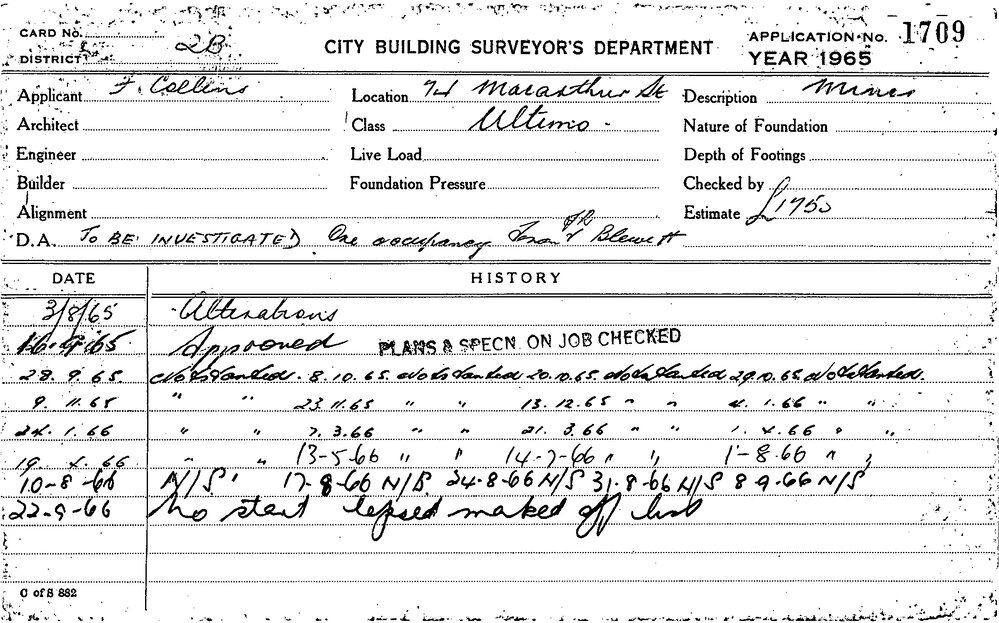 CARD No.
DISTRICT 2B
CITY BUILDING SURVEYOR'S DEPARTMENT
APPLICATION No. 1709
YEAR 1965
Applicant F. Collins Location 74 Macarthur St Description Minor
Architect Class Ultimo - Nature of Foundation
Engineer Live Load Depth of Footings
Builder Foundation Pressure Checked by
Alignment Estimate £1750
D.A. TO BE INVESTIGATED One occupancy Blewett
DATE HISTORY
3/8/65 Alterations
16.9.65 Approved PLANS & SPECN. ON JOB CHECKED
28.9.65 Not Started. 8.10.65. Not Started 20.10.65. Not Started 29.10.65 Not Started.
9.11.65 " " 23.11.65 " " 13.12.65 " " 4.1.66 " "
24.1.66 " " 7.3.66 " " 21.3.66 " " 1.4.66 " "
19.4.66 " " 13-5-66 " " 14-7-66 " " 1-8-66 " "
10-8-66 N/S. 17-8-66 N/S. 24-8-66 N/S 31-8-66 N/S 8-9-66 N/S
22-9-66 No start lapsed marked off list
C of S 882